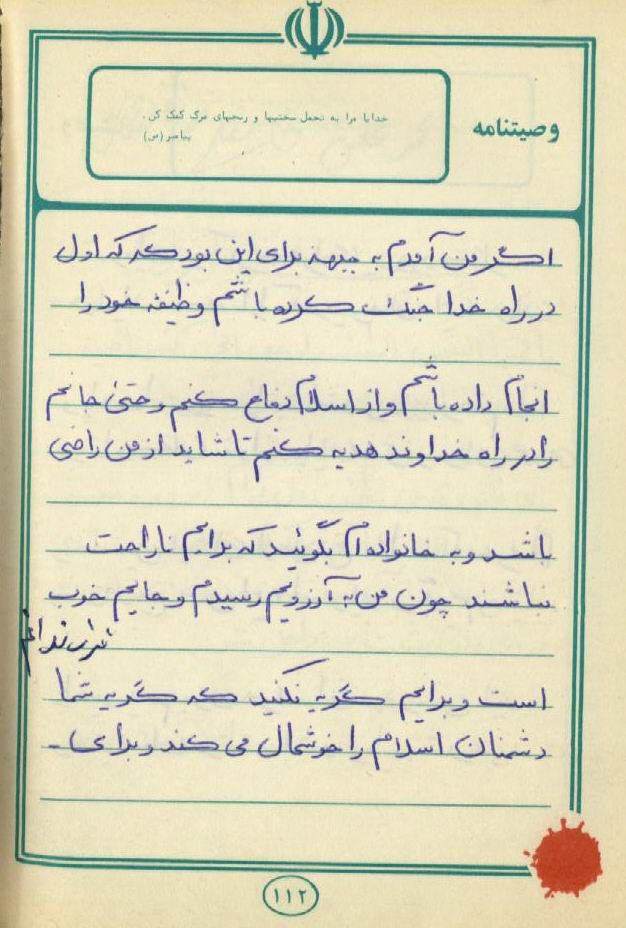 وصیتنامه
خدایا مرا به تحمل سختیها و رنجهای مرگ کمک کن.
پیامبر (ص)
اگر من آمدم به جبهه برای این بود که که اول
در راه خدا جنگ کرده باشم وظیفه خود را
انجام داده باشم و از اسلام دفاع کنم و حتی جانم
را در راه خداوند هدیه کنم تا شاید از من راضی
باشد و به خانواده‌ام بگوئید که برایم ناراحت
نباشند چون من به آرزویم رسیدم و جایم خوب
است و برایم گریه نکنید که گریه شما
دشمنان اسلام را خوشحال می کند و برای -
۱۱۲